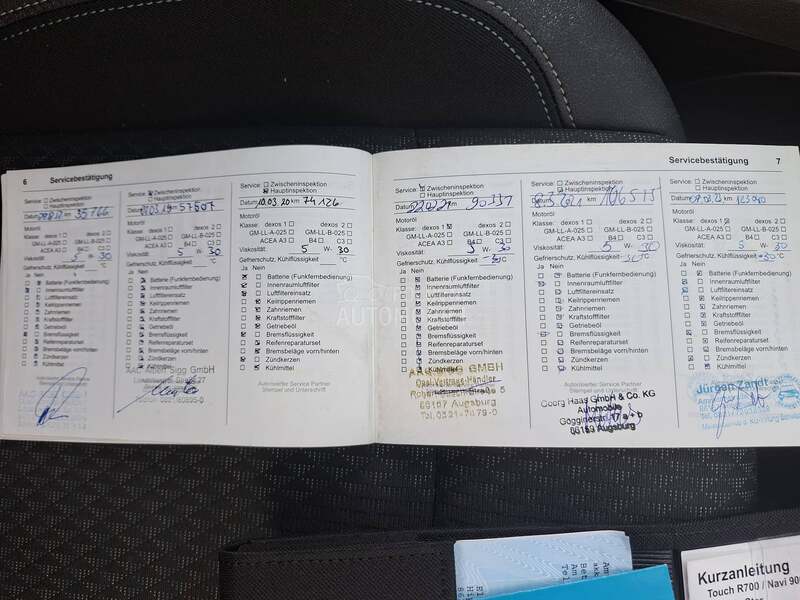 6 Servicebestätigung
Service: Zwischeninspektion
Hauptinspektion
Datum km 35166
Motoröl
Klasse: dexos 1 dexos 2
GM-LL-A-025 GM-LL-B-025
ACEA A3 B4 C3
Viskosität: 5 W- 30
Gefrierschutz, Kühlflüssigkeit: °C
Ja Nein
Batterie (Funkfernbedienung)
Innenraumluftfilter
Luftfiltereinsatz
Keilrippenriemen
Zahnriemen
Kraftstofffilter
Getriebeöl
Bremsflüssigkeit
Reifenreparaturset
Bremsbeläge vorn/hinten
Zündkerzen
Kühlmittel
Service: Zwischeninspektion
Hauptinspektion
Datum 57507
Motoröl
Klasse: dexos 1 dexos 2
GM-LL-A-025 GM-LL-B-025
ACEA A3 B4 C3
Viskosität: 5 W- 30
Gefrierschutz, Kühlflüssigkeit: °C
Ja Nein
Batterie (Funkfernbedienung)
Innenraumluftfilter
Luftfiltereinsatz
Keilrippenriemen
Zahnriemen
Kraftstofffilter
Getriebeöl
Bremsflüssigkeit
Reifenreparaturset
Bremsbeläge vorn/hinten
Zündkerzen
Kühlmittel
Sigg GmbH
Service: Zwischeninspektion
Hauptinspektion
Datum 10.03.20 km 74126
Motoröl
Klasse: dexos 1 dexos 2
GM-LL-A-025 GM-LL-B-025
ACEA A3 B4 C3
Viskosität: 5 W- 30
Gefrierschutz, Kühlflüssigkeit: °C
Ja Nein
Batterie (Funkfernbedienung)
Innenraumluftfilter
Luftfiltereinsatz
Keilrippenriemen
Zahnriemen
Kraftstofffilter
Getriebeöl
Bremsflüssigkeit
Reifenreparaturset
Bremsbeläge vorn/hinten
Zündkerzen
Kühlmittel
Autorisierter Service Partner
Stempel und Unterschrift
Servicebestätigung 7
Service: Zwischeninspektion
Hauptinspektion
Datum km 90337
Motoröl
Klasse: dexos 1 dexos 2
GM-LL-A-025 GM-LL-B-025
ACEA A3 B4 C3
Viskosität: 5 W- 30
Gefrierschutz, Kühlflüssigkeit: °C
Ja Nein
Batterie (Funkfernbedienung)
Innenraumluftfilter
Luftfiltereinsatz
Keilrippenriemen
Zahnriemen
Kraftstofffilter
Getriebeöl
Bremsflüssigkeit
Reifenreparaturset
Bremsbeläge vorn/hinten
Zündkerzen
Kühlmittel
GMBH
Opel-Vertrags-Händler
86167 Augsburg
Service: Zwischeninspektion
Hauptinspektion
Datum km 106515
Motoröl
Klasse: dexos 1 dexos 2
GM-LL-A-025 GM-LL-B-025
ACEA A3 B4 C3
Viskosität: 5 W- 30
Gefrierschutz, Kühlflüssigkeit: -30 °C
Ja Nein
Batterie (Funkfernbedienung)
Innenraumluftfilter
Luftfiltereinsatz
Keilrippenriemen
Zahnriemen
Kraftstofffilter
Getriebeöl
Bremsflüssigkeit
Reifenreparaturset
Bremsbeläge vorn/hinten
Zündkerzen
Kühlmittel
Georg Haas GmbH & Co. KG
Automobile
Gögginger Str. 17 a + b
86159 Augsburg
Service: Zwischeninspektion
Hauptinspektion
Datum km
Motoröl
Klasse: dexos 1 dexos 2
GM-LL-A-025 GM-LL-B-025
ACEA A3 B4 C3
Viskosität: 5 W- 30
Gefrierschutz, Kühlflüssigkeit: -30 °C
Ja Nein
Batterie (Funkfernbedienung)
Innenraumluftfilter
Luftfiltereinsatz
Keilrippenriemen
Zahnriemen
Kraftstofffilter
Getriebeöl
Bremsflüssigkeit
Reifenreparaturset
Bremsbeläge vorn/hinten
Zündkerzen
Kühlmittel
Jürgen Zandt
Kurzanleitung
Touch R700 / Navi 90